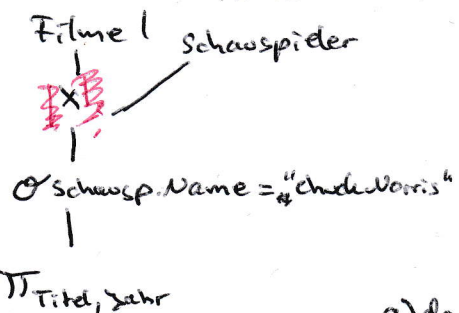 Filme
Schauspieler
×
σ Schausp.Name = "Chuck Norris"
π Titel, Jahr
a)